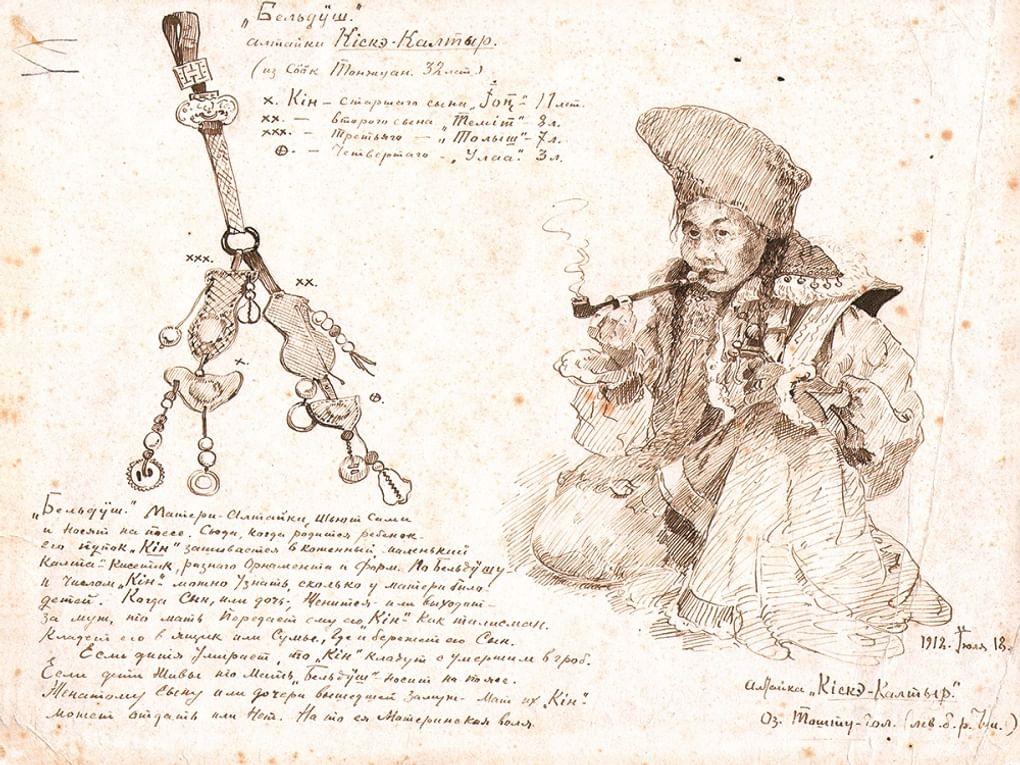 „Бельдӱш."
алтайки Кiскэ-Калтыр.
(из Сööк Тонжуан. 32 лет.)
х. Кiн — старшаго сына „Jоп" 11 лет.
хх. — второго сына „Темiт" - 8 л.
ххх. — Третьяго — „Толыш" - 7 л.
⊕. — Четвертаго - „Улаа" 3 л.
ххх.
хх.
х.
⊕.
„Бельдӱш." Матери-Алтайки, Шьют Сами
и Носят на поясе. Сюда, когда родится ребенок-
его пупок „Кiн" зашивается в коженный, маленький
Калта-Кисетик, разнаго Орнамента и форм. По Бельдӱшу-
и Числам „Кiн" можно Узнать, сколько у матери было
детей. Когда Сын, или дочь, Женится или выходит-
за муж, то мать Передает ему его „Кiн" Как талисман.
Кладет его в ящик или Сумы, где и бережет его Сын.
Если дитя Умирает, то „Кiн" кладут с умершим в гроб.
Если дети Живы его Мать, „Бельдӱш" носит на поясе.
Женатому Сыну или дочери вышедшей Замуж - Мать их „Кiн"
может отдать или Нет. На то ея Материнская воля.
1912. Июля 12.
алтайка „Кiскэ-Калтыр."
Оз. Ташту-гол. (лев. б. р. Чуи.)